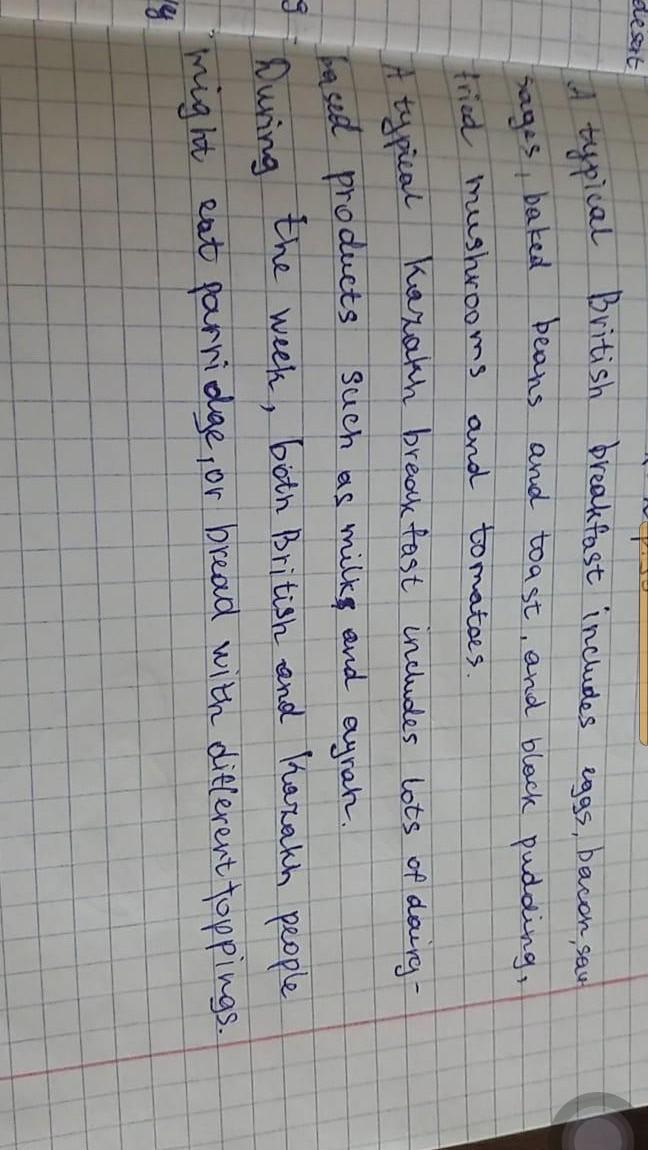 desert
A typical British breakfast includes eggs, bacon, sau
sages, baked beans and toast, and black pudding,
fried mushrooms and tomatoes.
A typical Kazakh breakfast includes lots of dairy-
based products such as milk and ayran.
During the week, both British and Kazakh people
might eat parridge, or bread with different toppings.